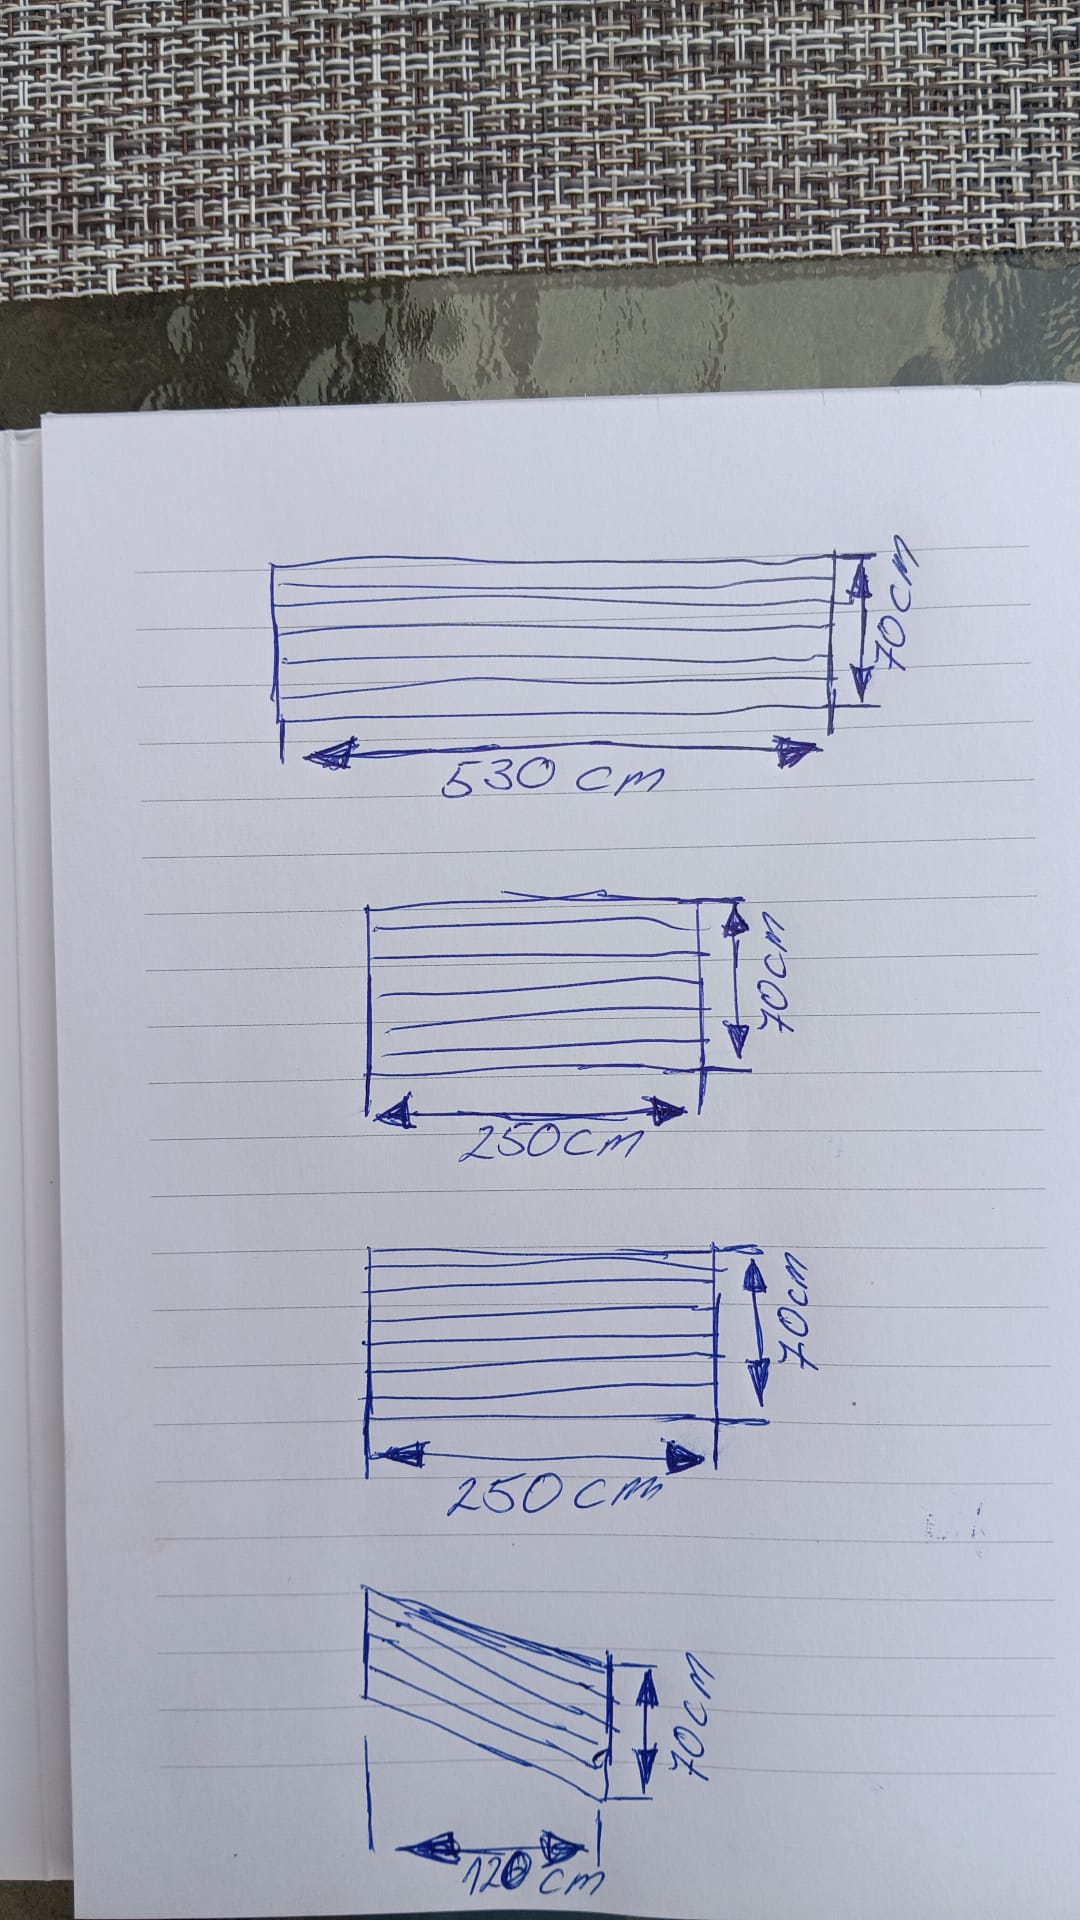 70cm
530 cm
70cm
250cm
70cm
250cm
70cm
120 cm